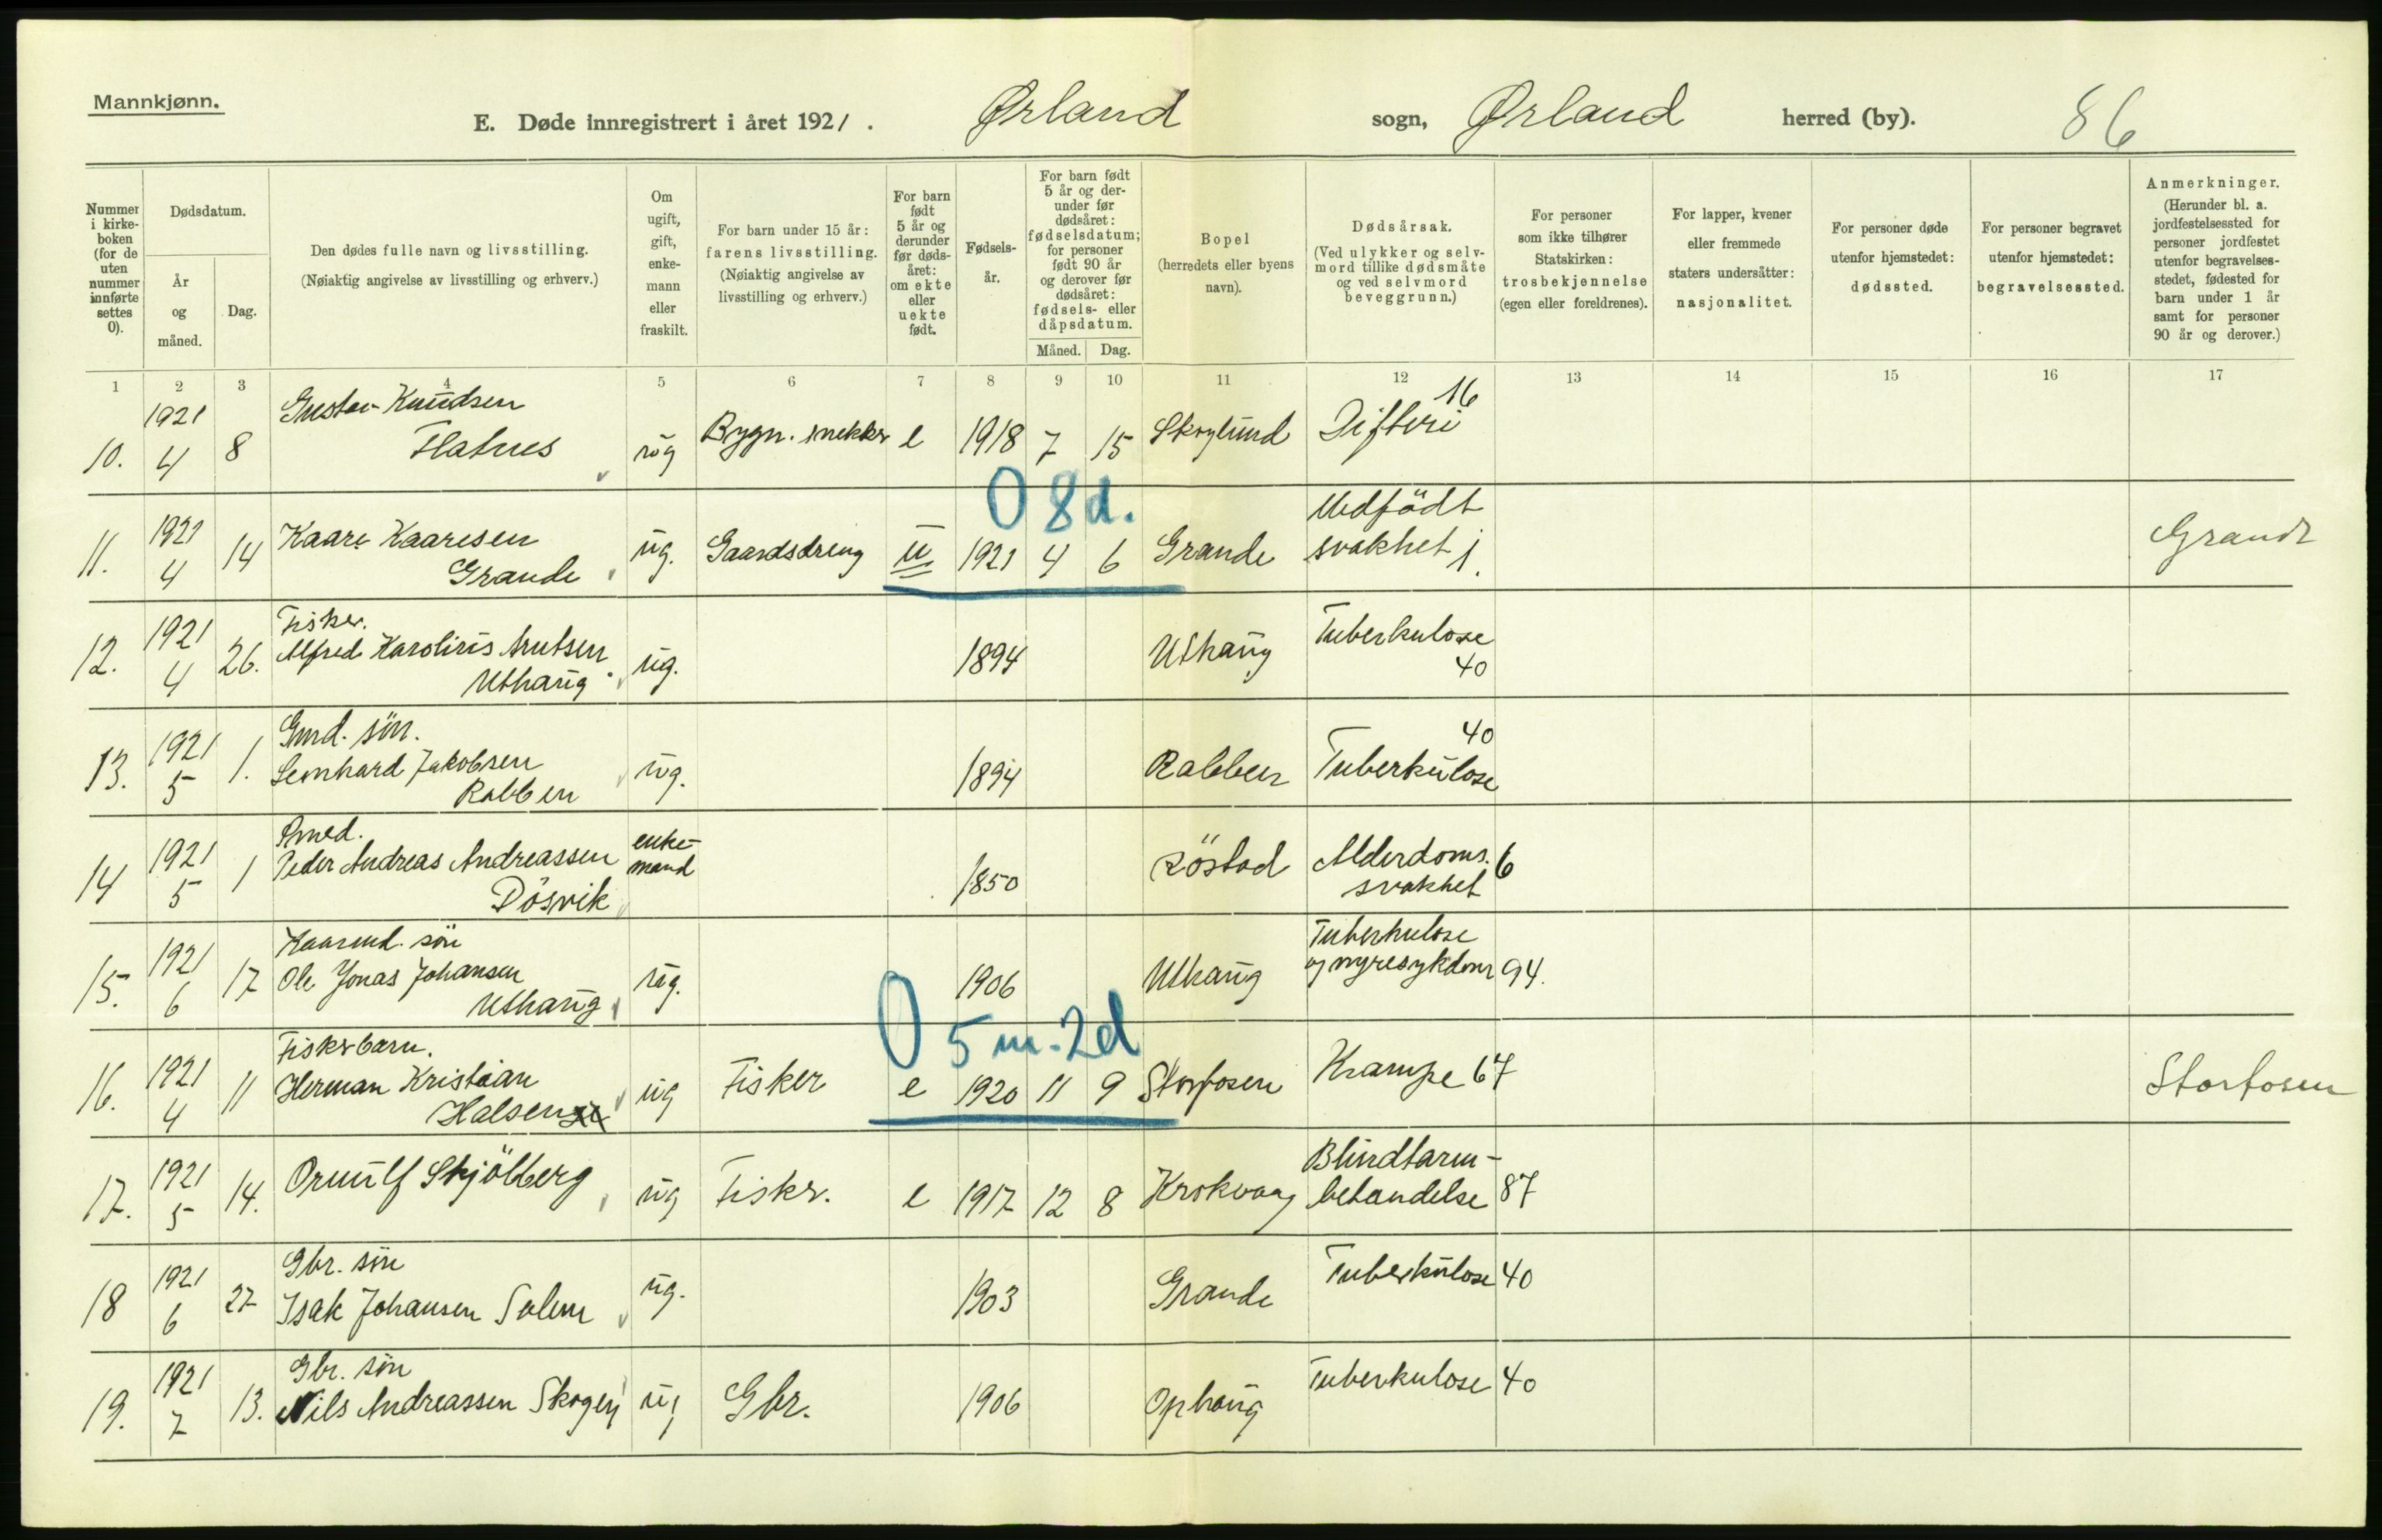 Mannkjønn.
E. Døde innregistrert i året 1921. Ørland sogn, Ørland herred (by). 86
Nummer i kirke-boken (for de uten nummer innførte settes 0).
Dødsdatum.
År og måned.
Dag.
Den dødes fulle navn og livsstilling.
(Nøiaktig angivelse av livsstilling og erhverv.)
Om ugift, gift, enke-mann eller fraskilt.
For barn under 15 år: farens livsstilling.
(Nøiaktig angivelse av livsstilling og erhverv.)
For barn født 5 år og derunder før døds-året: om ekte eller uekte født.
Fødsels-år.
For barn født 5 år og der-under før dødsåret: fødselsdatum; for personer født 90 år og derover før dødsåret: fødsels- eller dåpsdatum.
Måned. Dag.
Bopel (herredets eller byens navn).
Dødsårsak.
(Ved ulykker og selv-mord tillike dødsmåte og ved selvmord beveggrunn.)
For personer som ikke tilhører Statskirken: trosbekjennelse (egen eller foreldrenes).
For lapper, kvener eller fremmede staters undersåtter: nasjonalitet.
For personer døde utenfor hjemstedet: dødssted.
For personer begravet utenfor hjemstedet: begravelsessted.
Anmerkninger.
(Herunder bl. a. jordfestelsessted for personer jordfestet utenfor begravelses-stedet, fødested for barn under 1 år samt for personer 90 år og derover.)
1 2 3 4 5 6 7 8 9 10 11 12 13 14 15 16 17
10. 1921 4 8 Gustav Knudsen Flatnes ug Bygn. snekker e 1918 7 15 Skoglund Difteri 16
0 8 d.
11. 1921 4 14 Kaare Kaaresen Grande ug. Gaardsdreng u 1921 4 6 Grande Medfödt svakhet Grande
12. 1921 4 26. Fisker. Alfred Uthaug ug. 1894 Uthaug Tuberkulose 40
13. 1921 5 1. Gmd. sön. Jakobsen Rabben ug. 1894 Rabben Tuberkulose 40
14 1921 5 1 Peder Andreas Andreassen Dösvik enke-mand 1850 Röstad Alderdoms. svakhet 6
15. 1921 6 17 sön Ole Jonas Johansen Uthaug ug. 1906 Uthaug Tuberkulose og nyresykdom 94.
0 5 m. 2 d
16. 1921 4 11 Fiskerbarn. Herman Kristian Halsen ug Fisker e 1920 11 9 Storfosen Krampe 67 Storfosen
17. 1921 5 14. Ornulf Skjölberg ug Fisker. e 1917 12 8 Krokvaag Blindtarm-betandelse 87
18 1921 6 27 Gbr. sön Isak Johansen Solem ug. 1903 Grande Tuberkulose 40
19. 1921 7 13. Gbr. sön Nils Andreassen ug Gbr. 1906 Ophaug Tuberkulose 40